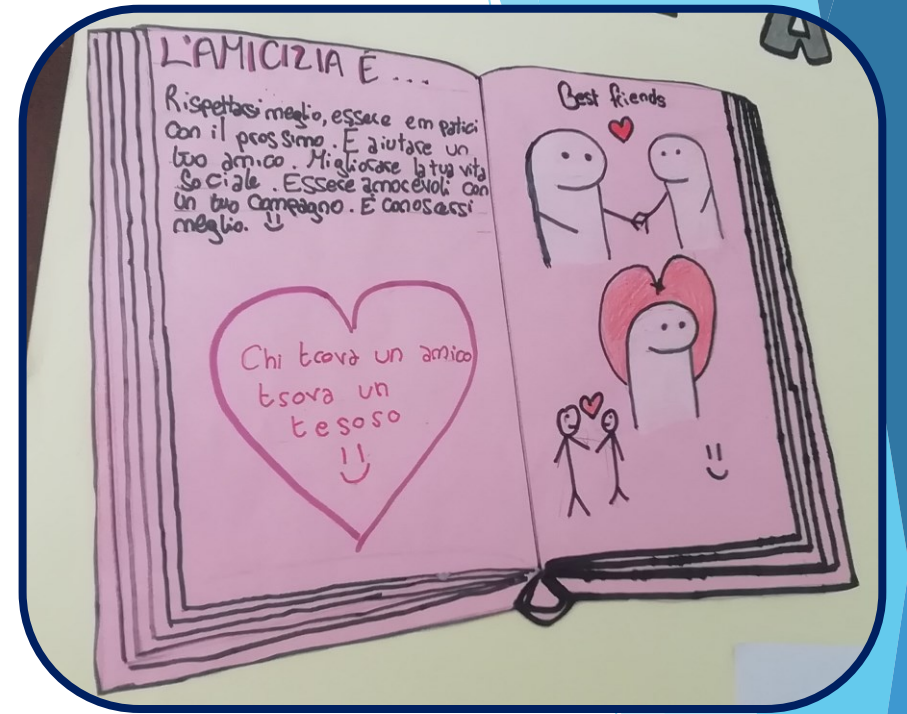 L'AMICIZIA È ...
Rispettarsi meglio, essere empatici
con il prossimo. È aiutare un
tuo amico. Migliorare la tua vita
Sociale. Essere amocevoli con
un tuo compagno. È conoscessi
meglio.
Chi trova un amico
trova un
tesoro
Best friends
A